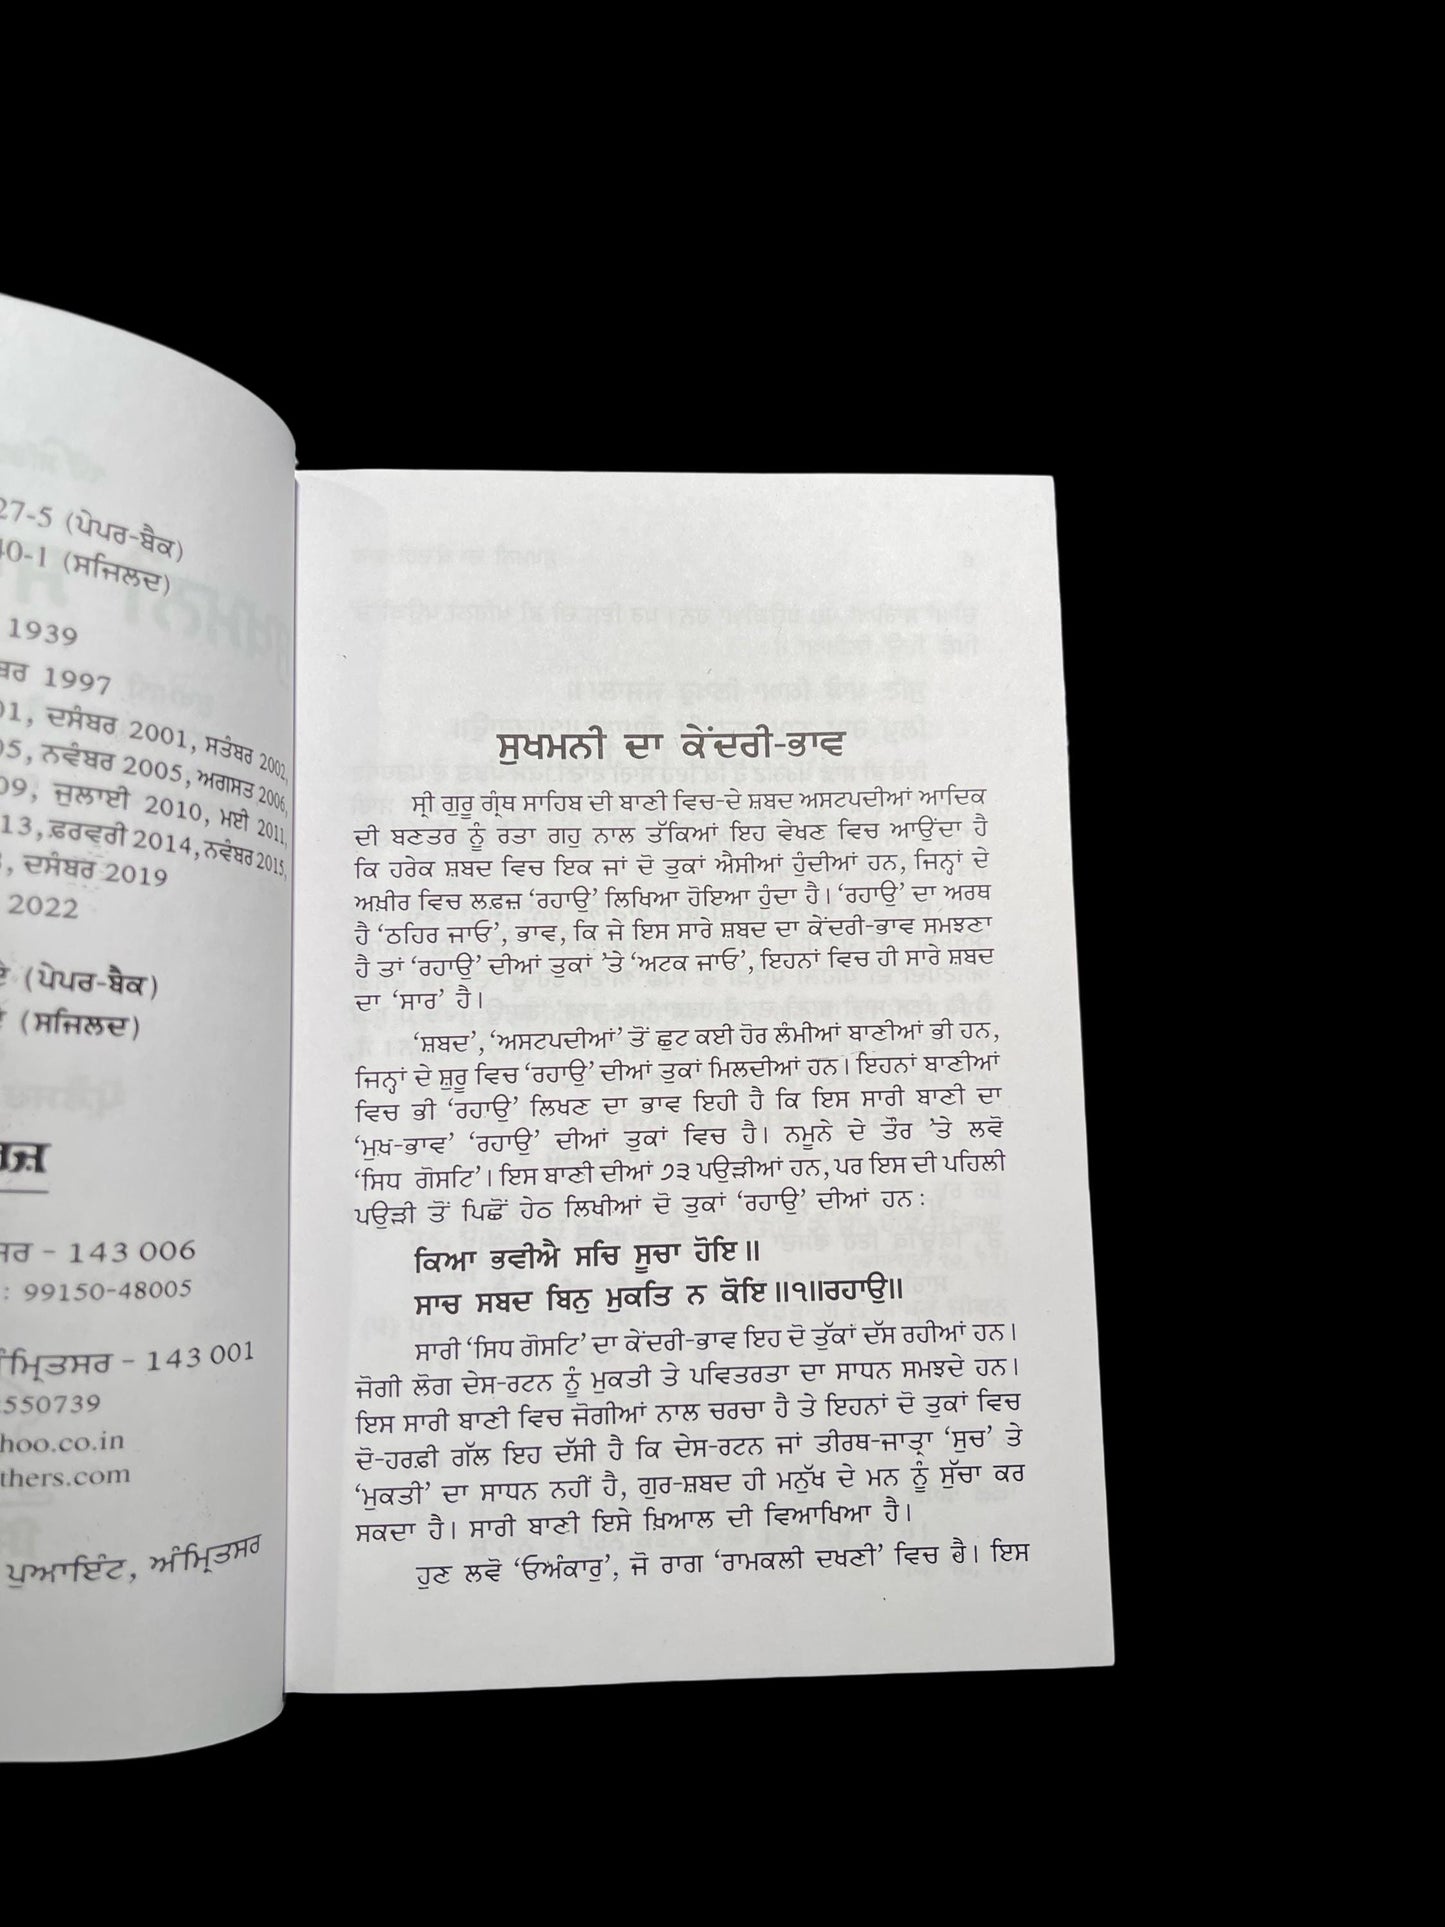 27-5 (ਪੇਪਰ-ਬੈਕ)
40-1 (ਸਜਿਲਦ)
1939
1997
01, ਦਸੰਬਰ 2001, ਸਤੰਬਰ 2002,
05, ਨਵੰਬਰ 2005, ਅਗਸਤ 2006,
09, ਜੁਲਾਈ 2010, ਮਈ 2011,
13, ਫ਼ਰਵਰੀ 2014, ਨਵੰਬਰ 2015,
, ਦਸੰਬਰ 2019
2022
(ਪੇਪਰ-ਬੈਕ)
(ਸਜਿਲਦ)
- 143 006
: 99150-48005
ਅੰਮ੍ਰਿਤਸਰ - 143 001
550739
hoo.co.in
thers.com
ਪੁਆਇੰਟ, ਅੰਮ੍ਰਿਤਸਰ
ਸੁਖਮਨੀ ਦਾ ਕੇਂਦਰੀ-ਭਾਵ
ਸ੍ਰੀ ਗੁਰੂ ਗ੍ਰੰਥ ਸਾਹਿਬ ਦੀ ਬਾਣੀ ਵਿਚ-ਦੇ ਸ਼ਬਦ ਅਸਟਪਦੀਆਂ ਆਦਿਕ
ਦੀ ਬਣਤਰ ਨੂੰ ਰਤਾ ਗਹੁ ਨਾਲ ਤੱਕਿਆਂ ਇਹ ਵੇਖਣ ਵਿਚ ਆਉਂਦਾ ਹੈ
ਕਿ ਹਰੇਕ ਸ਼ਬਦ ਵਿਚ ਇਕ ਜਾਂ ਦੋ ਤੁਕਾਂ ਐਸੀਆਂ ਹੁੰਦੀਆਂ ਹਨ, ਜਿਨ੍ਹਾਂ ਦੇ
ਅਖ਼ੀਰ ਵਿਚ ਲਫ਼ਜ਼ ‘ਰਹਾਉ’ ਲਿਖਿਆ ਹੋਇਆ ਹੁੰਦਾ ਹੈ। ‘ਰਹਾਉ’ ਦਾ ਅਰਥ
ਹੈ ‘ਠਹਿਰ ਜਾਓ’, ਭਾਵ, ਕਿ ਜੇ ਇਸ ਸਾਰੇ ਸ਼ਬਦ ਦਾ ਕੇਂਦਰੀ-ਭਾਵ ਸਮਝਣਾ
ਹੈ ਤਾਂ ‘ਰਹਾਉ’ ਦੀਆਂ ਤੁਕਾਂ ’ਤੇ ‘ਅਟਕ ਜਾਓ’, ਇਹਨਾਂ ਵਿਚ ਹੀ ਸਾਰੇ ਸ਼ਬਦ
ਦਾ ‘ਸਾਰ’ ਹੈ।
‘ਸ਼ਬਦ’, ‘ਅਸਟਪਦੀਆਂ’ ਤੋਂ ਛੁਟ ਕਈ ਹੋਰ ਲੰਮੀਆਂ ਬਾਣੀਆਂ ਭੀ ਹਨ,
ਜਿਨ੍ਹਾਂ ਦੇ ਸ਼ੁਰੂ ਵਿਚ ‘ਰਹਾਉ’ ਦੀਆਂ ਤੁਕਾਂ ਮਿਲਦੀਆਂ ਹਨ। ਇਹਨਾਂ ਬਾਣੀਆਂ
ਵਿਚ ਭੀ ‘ਰਹਾਉ’ ਲਿਖਣ ਦਾ ਭਾਵ ਇਹੀ ਹੈ ਕਿ ਇਸ ਸਾਰੀ ਬਾਣੀ ਦਾ
‘ਮੁਖ-ਭਾਵ’ ‘ਰਹਾਉ’ ਦੀਆਂ ਤੁਕਾਂ ਵਿਚ ਹੈ। ਨਮੂਨੇ ਦੇ ਤੌਰ ’ਤੇ ਲਵੋ
‘ਸਿਧ ਗੋਸਟਿ’। ਇਸ ਬਾਣੀ ਦੀਆਂ ੭੩ ਪਉੜੀਆਂ ਹਨ, ਪਰ ਇਸ ਦੀ ਪਹਿਲੀ
ਪਉੜੀ ਤੋਂ ਪਿਛੋਂ ਹੇਠ ਲਿਖੀਆਂ ਦੋ ਤੁਕਾਂ ‘ਰਹਾਉ’ ਦੀਆਂ ਹਨ :
ਕਿਆ ਭਵੀਐ ਸਚਿ ਸੂਚਾ ਹੋਇ॥
ਸਾਚ ਸਬਦ ਬਿਨੁ ਮੁਕਤਿ ਨ ਕੋਇ॥੧॥ਰਹਾਉ॥
ਸਾਰੀ ‘ਸਿਧ ਗੋਸਟਿ’ ਦਾ ਕੇਂਦਰੀ-ਭਾਵ ਇਹ ਦੋ ਤੁੱਕਾਂ ਦੱਸ ਰਹੀਆਂ ਹਨ।
ਜੋਗੀ ਲੋਗ ਦੇਸ-ਰਟਨ ਨੂੰ ਮੁਕਤੀ ਤੇ ਪਵਿਤਰਤਾ ਦਾ ਸਾਧਨ ਸਮਝਦੇ ਹਨ।
ਇਸ ਸਾਰੀ ਬਾਣੀ ਵਿਚ ਜੋਗੀਆਂ ਨਾਲ ਚਰਚਾ ਹੈ ਤੇ ਇਹਨਾਂ ਦੋ ਤੁਕਾਂ ਵਿਚ
ਦੋ-ਹਰਫ਼ੀ ਗੱਲ ਇਹ ਦੱਸੀ ਹੈ ਕਿ ਦੇਸ-ਰਟਨ ਜਾਂ ਤੀਰਥ-ਜਾਤ੍ਰਾ ‘ਸੁਚ’ ਤੇ
‘ਮੁਕਤੀ’ ਦਾ ਸਾਧਨ ਨਹੀਂ ਹੈ, ਗੁਰ-ਸ਼ਬਦ ਹੀ ਮਨੁੱਖ ਦੇ ਮਨ ਨੂੰ ਸੁੱਚਾ ਕਰ
ਸਕਦਾ ਹੈ। ਸਾਰੀ ਬਾਣੀ ਇਸੇ ਖ਼ਿਆਲ ਦੀ ਵਿਆਖਿਆ ਹੈ।
ਹੁਣ ਲਵੋ ‘ਓਅੰਕਾਰੁ’, ਜੋ ਰਾਗ ‘ਰਾਮਕਲੀ ਦਖਣੀ’ ਵਿਚ ਹੈ। ਇਸ